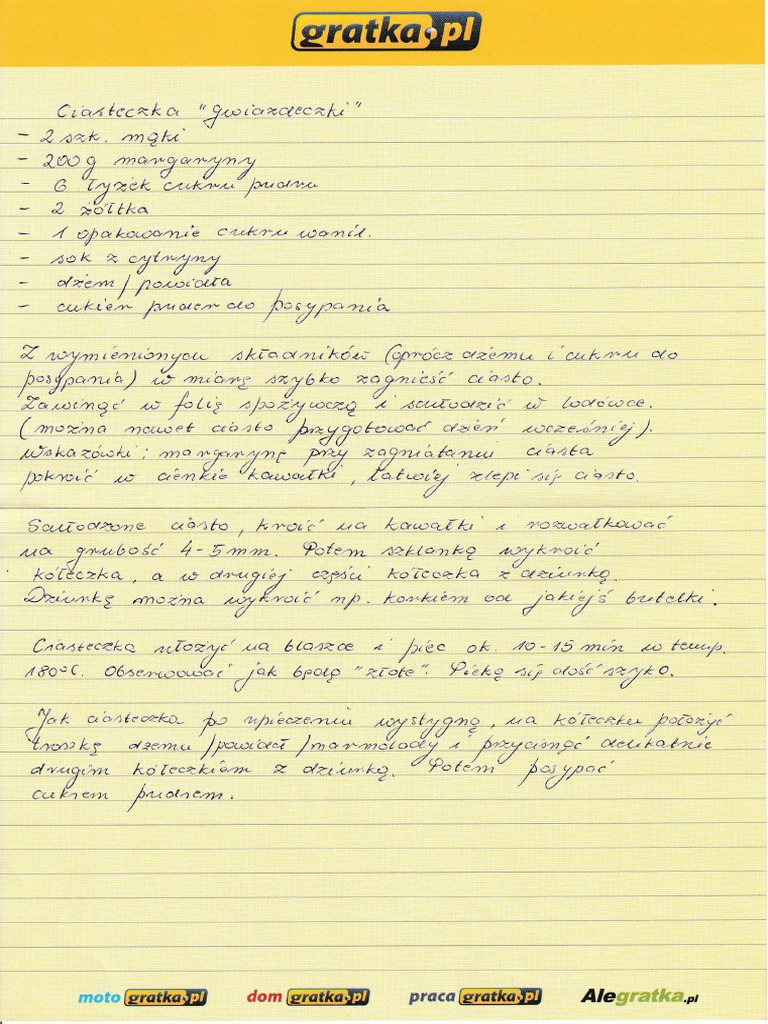 gratka.pl
Ciasteczka "gwiazdeczki"
- 2 szk. mąki
- 200 g margaryny
- 6 łyżek cukru pudru
- 2 żółtka
- 1 opakowanie cukru wanil.
- sok z cytryny
- dżem / powidła
- cukier puder do posypania
Z wymienionych składników (oprócz dżemu i cukru do
posypania) w miarę szybko zagnieść ciasto.
Zawinąć w folię spożywczą i schłodzić w lodówce.
(można nawet ciasto przygotować dzień wcześniej).
Wskazówki: margarynę przy zagniataniu ciasta
pokroić w cienkie kawałki, łatwiej zlepi się ciasto.
Schłodzone ciasto, kroić na kawałki i rozwałkować
na grubość 4-5 mm. Potem szklanką wykroić
kółeczka, a w drugiej części kółeczka z dziurką.
Dziurkę można wykroić np. korkiem od jakiejś butelki.
Ciasteczka ułożyć na blaszce i piec ok. 10-15 min w temp.
180°C. Obserwować jak będą "złote". Pieką się dość szyko.
Jak ciasteczka po upieczeniu wystygną, na kółeczku położyć
troszkę dżemu /powideł /marmolady i przycisnąć delikatnie
drugim kółeczkiem z dziurką. Potem posypać
cukrem pudrem.
moto gratka.pl dom gratka.pl praca gratka.pl Alegratka.pl